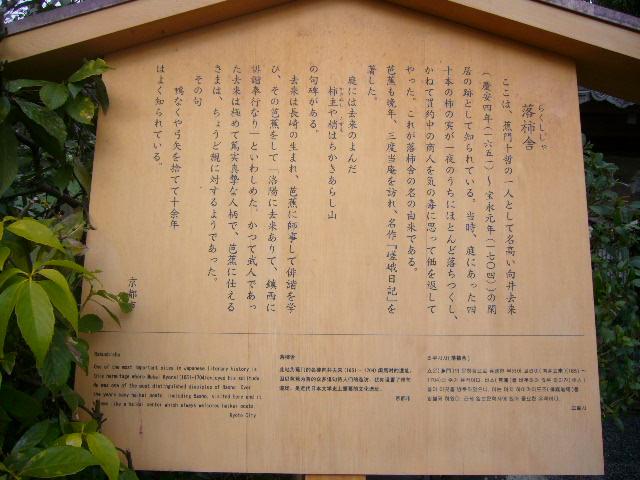 らくししゃ
落柿舎
ここは、蕉門十哲の一人として名高い向井去来
(慶安四年(一六五一)〜宝永元年(一七〇四))の閑
居の跡として知られている。当時、庭にあった四
十本の柿の実が一夜のうちにほとんど落ちつくし、
かねて買約中の商人を気の毒に思って価を返して
やった。これが落柿舎の名の由来である。
芭蕉も晩年、三度当庵を訪れ、名作「嵯峨日記」を
著した。
庭には去来のよんだ
柿主や梢はちかきあらし山
の句碑がある。
去来は長崎の生まれ、芭蕉に師事して俳諧を学
び、その芭蕉をして「洛陽に去来ありて、鎮西に
俳諧奉行なり」といわしめた。かつて武人であっ
た去来は極めて篤実真摯な人柄で、芭蕉に仕える
さまは、ちょうど親に対するようであった。
その句
鴨なくや弓矢を捨てて十余年
はよく知られている。
京都市
Rakushisha
One of the most important sites in Japanese literary history is
this hermitage where Mukai Kyorai (1651-1704) enjoyed his solitude.
He was one of the most distinguished disciples of Basho. Over
the years many haikai poets, including Basho, visited here and it
like a haikai center which always welcomes haikai poets.
Kyoto City
落柿舍
京都市